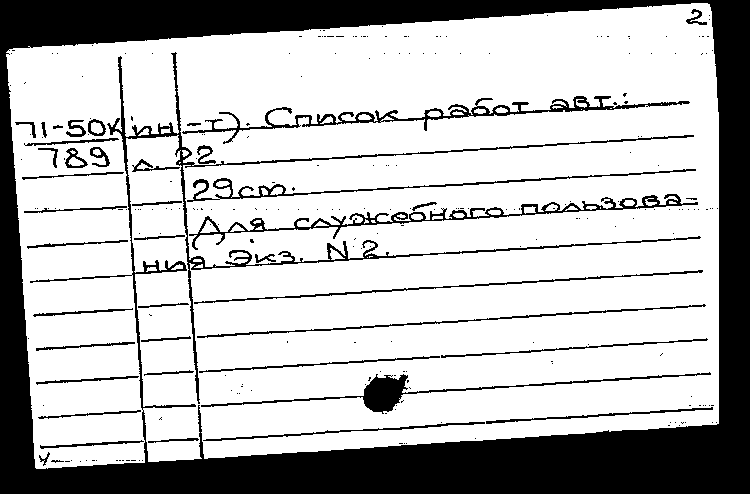 2
71-50К ин-т). Список работ авт.:
789 л. 22.
29 см.
Для служебного пользова=
ния. Экз. N 2.